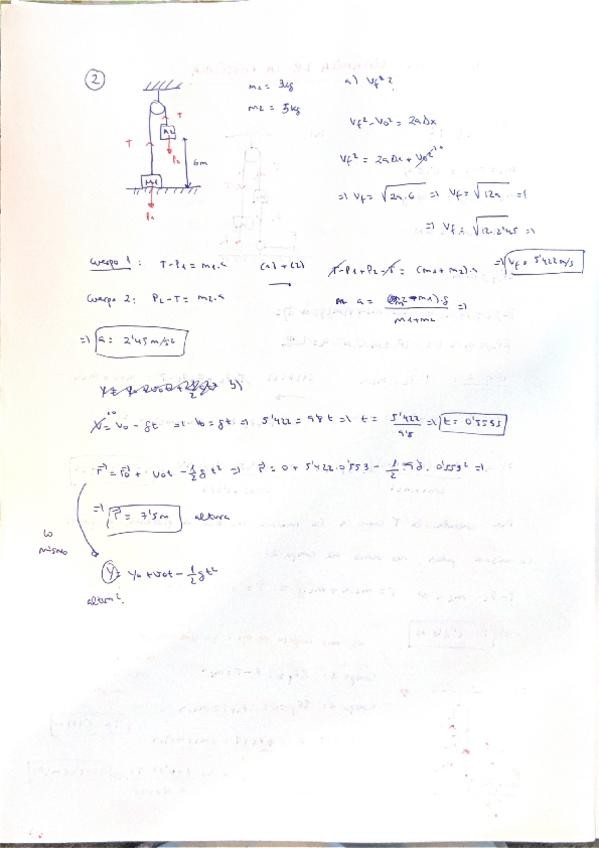 2
m1 = 3kg
m2 = 5kg
a) Vf²?
Vf² - V0² = 2aΔx
Vf² = 2aΔx + V0² 0
=> Vf = √2a.6 => Vf = √12a =>
=> Vf = √12.2'45 =>
=> Vf = 5'422 m/s
T
T
M2
P2
6m
M1
P1
Cuerpo 1: T - P1 = m1.a (1) + (2) T - P1 + P2 - T = (m1 + m2).a
Cuerpo 2: P2 - T = m2.a a = (m2 - m1).g / m1 + m2 =>
=> a = 2'45 m/s²
b)
V 0 = V0 - gt => V0 = gt => 5'422 = 9'8 t => t = 5'422 / 9'8 => t = 0'553s
r = r0 + v0t - 1/2 g t² => r = 0 + 5'422.0'553 - 1/2 . 9'8 . 0'553² =>
=> r = 7'5m altura
lo
mismo
Y = Y0 + v0t - 1/2 gt²
altura